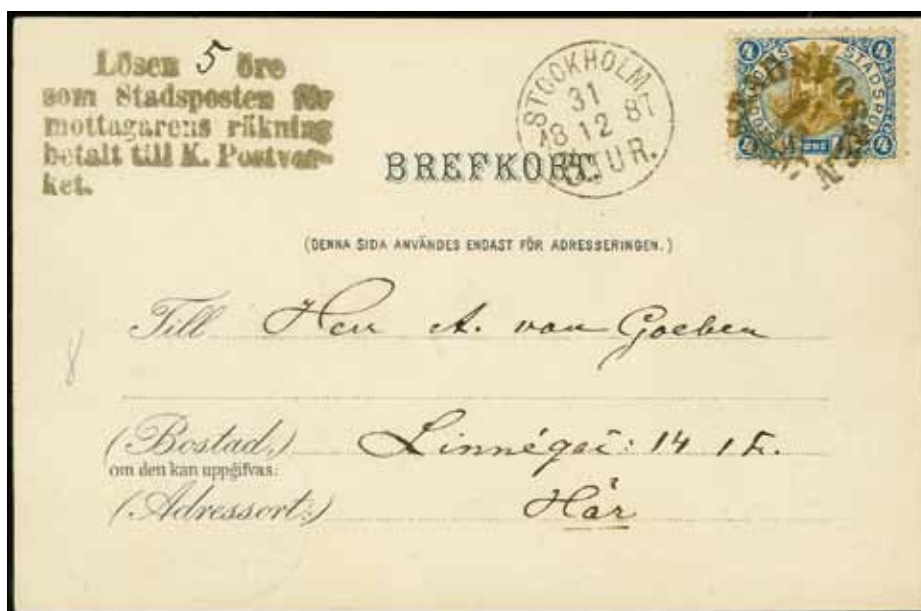 Lösen 5 öre
som Stadsposten för
mottagarens räkning
betalt till K. Postver-
ket.
STOCKHOLM
31
12 87
TUR.
4 STADSPOST 4
4 ÖRE 4
BREFKORT.
(DENNA SIDA ANVÄNDES ENDAST FÖR ADRESSERINGEN.)
Till Herr A. von Goeben
8
(Bostad,) Linnégat: 14 1
om den kan uppgifvas:
(Adressort:) Här